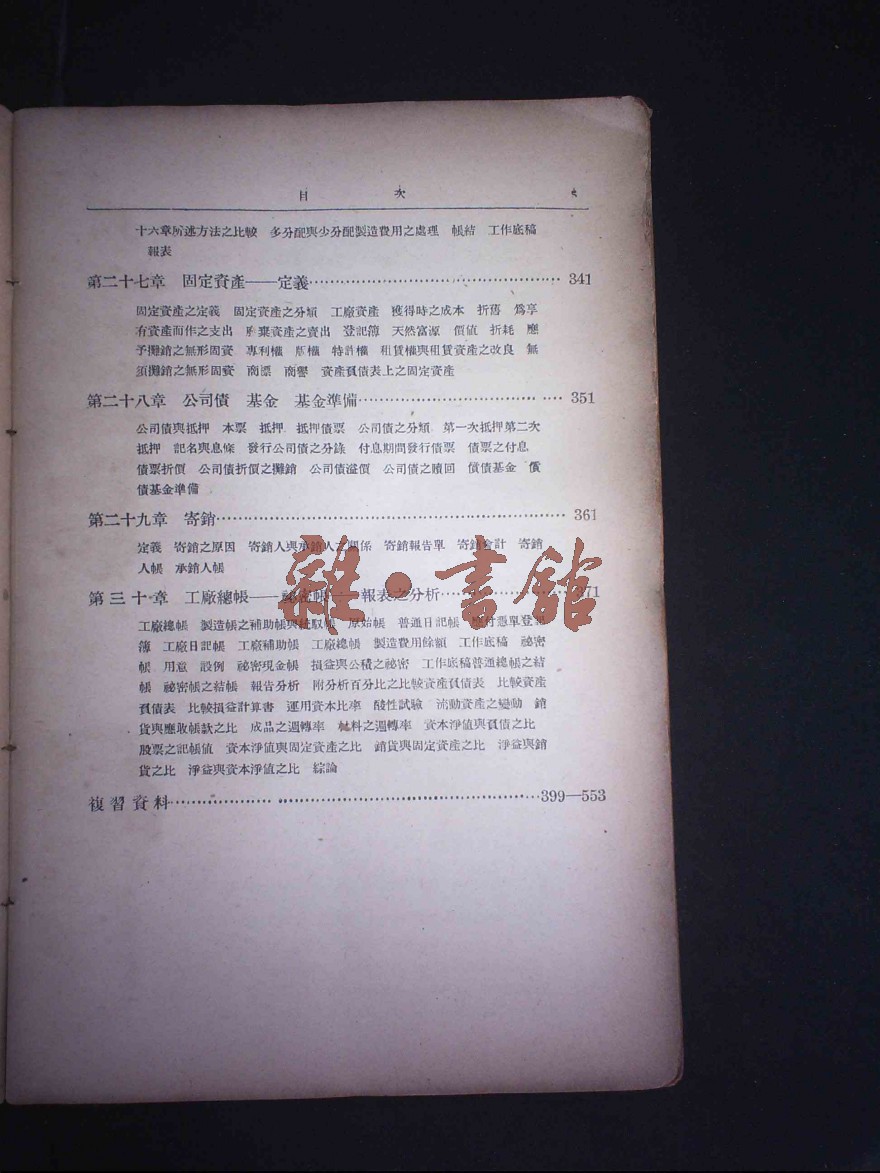 目 次
十六章所述方法之比較 多分配與少分配製造費用之處理 帳結 工作底稿
報表
第二十七章 固定資產——定義 341
固定資產之定義 固定資產之分類 工廠資產 獲得時之成本 折舊 爲享
有資產而作之支出 廢棄資產之賣出 登記簿 天然富源 價值 折耗 應
予攤銷之無形固資 專利權 版權 特許權 租賃權與租賃資產之改良 無
須攤銷之無形固資 商標 商譽 資產負債表上之固定資產
第二十八章 公司債 基金 基金準備 351
公司債與抵押 本票 抵押 抵押債票 公司債之分類 第一次抵押第二次
抵押 記名與息條 發行公司債之分錄 付息期間發行債票 債票之付息
債票折價 公司債折價之攤銷 公司債溢價 公司債之贖回 償債基金 償
債基金準備
第二十九章 寄銷 361
定義 寄銷之原因 寄銷人與承銷人之關係 寄銷報告單 寄銷會計 寄銷
人帳 承銷人帳
第三十章 工廠總帳——祕密帳——報表之分析 371
工廠總帳 製造帳之補助帳與統馭帳 原始帳 普通日記帳 應付憑單登記
簿 工廠日記帳 工廠補助帳 工廠總帳 製造費用餘額 工作底稿 祕密
帳 用意 設例 祕密現金帳 損益與公積之祕密 工作底稿普通總帳之結
帳 祕密帳之結帳 報告分析 附分析百分比之比較資產負債表 比較資產
負債表 比較損益計算書 運用資本比率 酸性試驗 流動資產之變動 銷
貨與應收帳款之比 成品之週轉率 材料之週轉率 資本淨值與負債之比
股票之記帳值 資本淨值與固定資產之比 銷貨與固定資產之比 淨益與銷
貨之比 淨益與資本淨值之比 綜論
複習資料 399—553
雜·書館